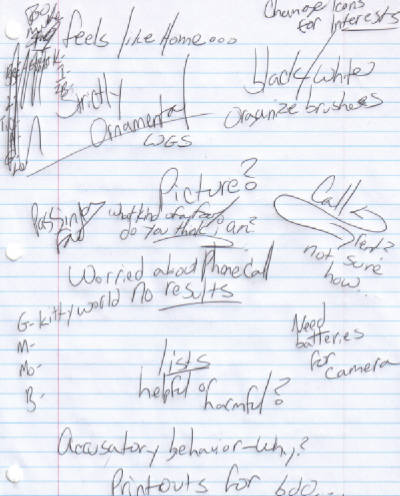 Change Icons
for Interests
feels like Home...
black/white
Strictly
Ornamental
organize brushes
WGS
Picture?
Call
Passing
Fad
what kind of a
do you think i am?
not sure
how...
Worried about Phone Call
No results
G- kitty world
M-
Mo-
B-
Need
batteries
for
camera
lists
helpful or
harmful?
Accusatory behavior-why?
Printouts for